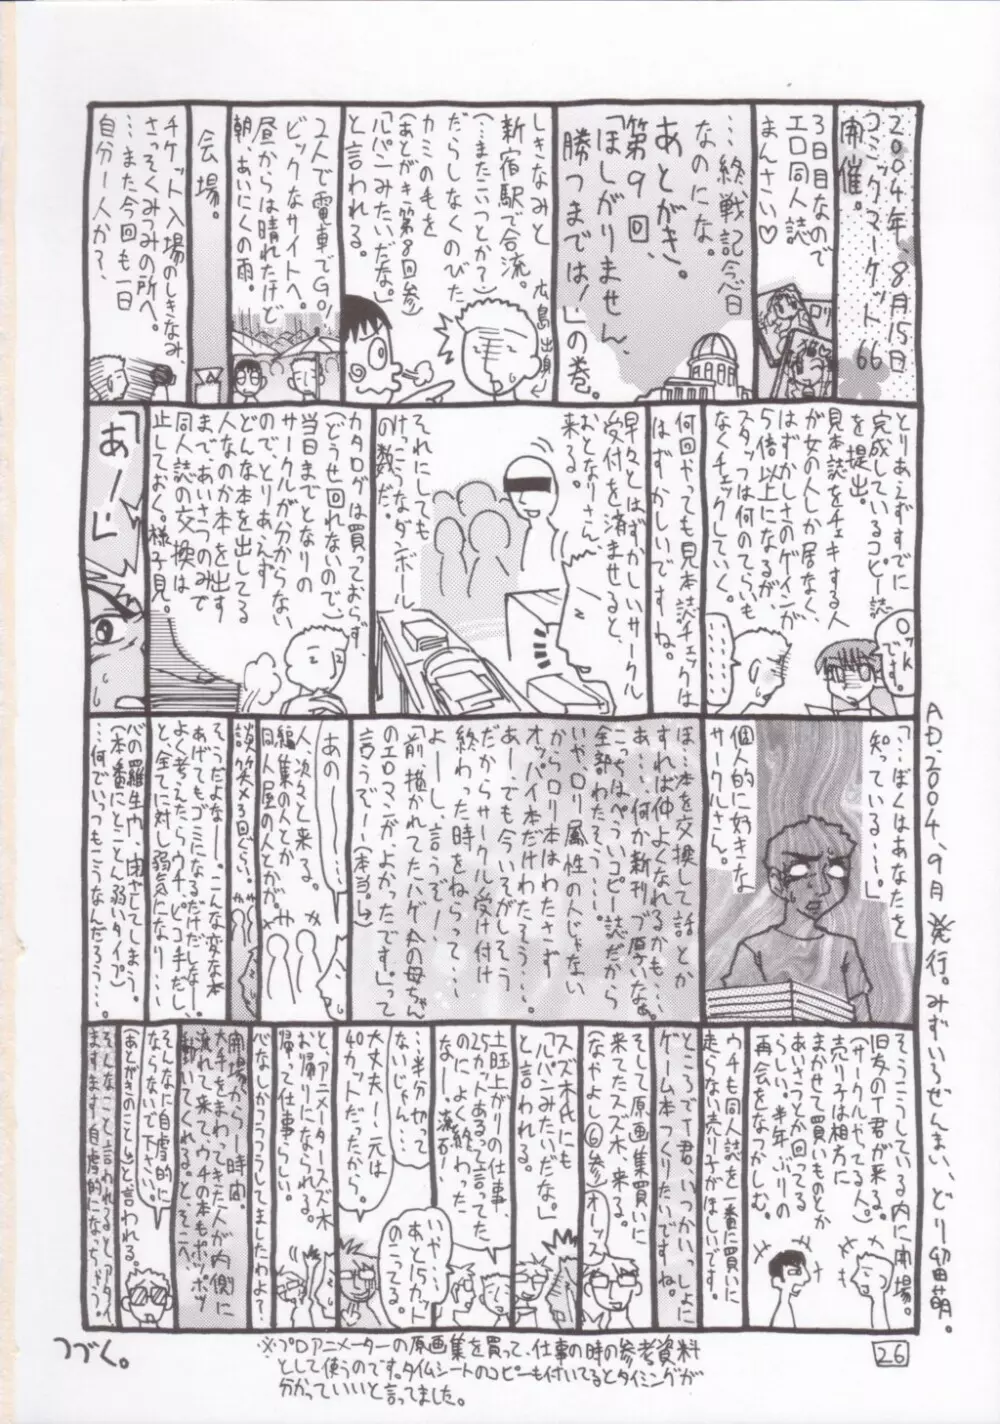 2004年、8月15日
コミックマーケット66
開催。
3日目なので
エロ同人誌
まんさい♡
ロリ
…終戦記念日
なのにな。
あとがき。
第9回、
「ほしがりません、
勝つまでは！」の巻。
しきなみと
新宿駅で合流。
(…またこいつとか？)
だらしなくのびた
カミの毛を
(あとがき第8回参)
「ルパンみたいだな。」
と言われる。
広島出身
2人で電車でGo！
ビックなサイトへ。
昼からは晴れたけど
朝、あいにくの雨。
会場。
チケット入場のしきなみ、
さっそくみつみの所へ。
…また今回も一日
自分一人か？、
とりあえずすでに
完成しているコピー誌
を提出。
見本誌をチェキする人
が女の人しか居なく、
はずかしさのゲインが
5倍以上になるが、
スタッフは何のてらいも
なくチェックしていく。
Okです。
何回やっても見本誌チェックは
はずかしいですね。
早々とはずかしいサークル
受付を済ませると、
おとなりさん、
来る。
それにしても
けっこうなダンボール
の数だ。
カタログは買っておらず、
(どうせ回れないので、)
当日までとなりの
サークルが分からない
ので、とりあえず
どんな本を出してる
人なのか本を出す
まで、あいさつのみで
同人誌の交換は
止しておく。様子見。
「あー」
「…ぼくはあなたを
知っている……。」
個人的に好きな
サークルさん。
ほ…本を交換して話とか
すれば仲よくなれるかも…
あ…、何か新刊ブ厚いなぁ。
こっちはぺらいコピー誌だから
全部わたそう……。
いや、ロリ属性の人じゃない
からロリ本はわたさず
オッパイ本だけわたそう…。
あー、でも今いそがしそう
だからサークル受け付け
終わった時をねらって…
よーし、言うぞ！
「前、描かれてたハゲ丸の母ちゃん
のエロマンガよかったです」って
言うぞー！(本当。)
あのーー
人、次々と来る。
編集の人とか
同人屋の人とかが。
談笑×3回ぐらい。
そうだよなー。こんな変な本
あげてもゴミになるだけだしなー。
よく考えたらウチ、ピコ手だし、
と、全てに対し弱気になり…
心の羅生門、閉ざしてしまう。
(本番にとことん弱いタイプ)
…何でいつもこうなんだろう…
そうこうしている内に開場。
旧友のT君が来る。
(サークルやってる人。)
売り子は相方に
まかせて買いものとか
あいさつとか回ってる
らしい。半年ぶりの
再会をなつかしむ。
ウチも同人誌を一番に買いに
走らない売り子がほしいです。
ところでT君、いつかいっしょに
ゲーム本つくりたいですね。
そして原画集買いに
来てたスズ木、来る。
(なかよし⑥参)
オーッス
スズ木氏にも
「ルパンみたいだな。」
と言われる。
土旺上がりの仕事、
25カットあるって言ってた
のによく終わった
な！…流石！
いや…
あと15カット
のこってる。
…半分って
ないじゃん…
大丈夫！元は
40カットだったから。
と、アニメータースズ木
お帰りになられる。
帰って仕事らしい。
心なしかうつうつしてましたわよ？
開場から一時間。
大手をまわってきた人が内側に
流れて来て、ウチの本もポツポツ
動いてくれる。と、そこへ、
そんなに自虐的に
ならないで下さい。
(あとがきのこと)と、言われる。
そんなこと言われるとアタイ
ますます自虐的になっちゃう。
A.D.2004、9月発行。みずいろぜんまい、どり切田萌。
26
つづく。
※プロアニメーターの原画集を買って、仕事の時の参考資料
として使うのです。タイムシートのコピーも付いてるとタイミングが
分かっていいと言ってました。